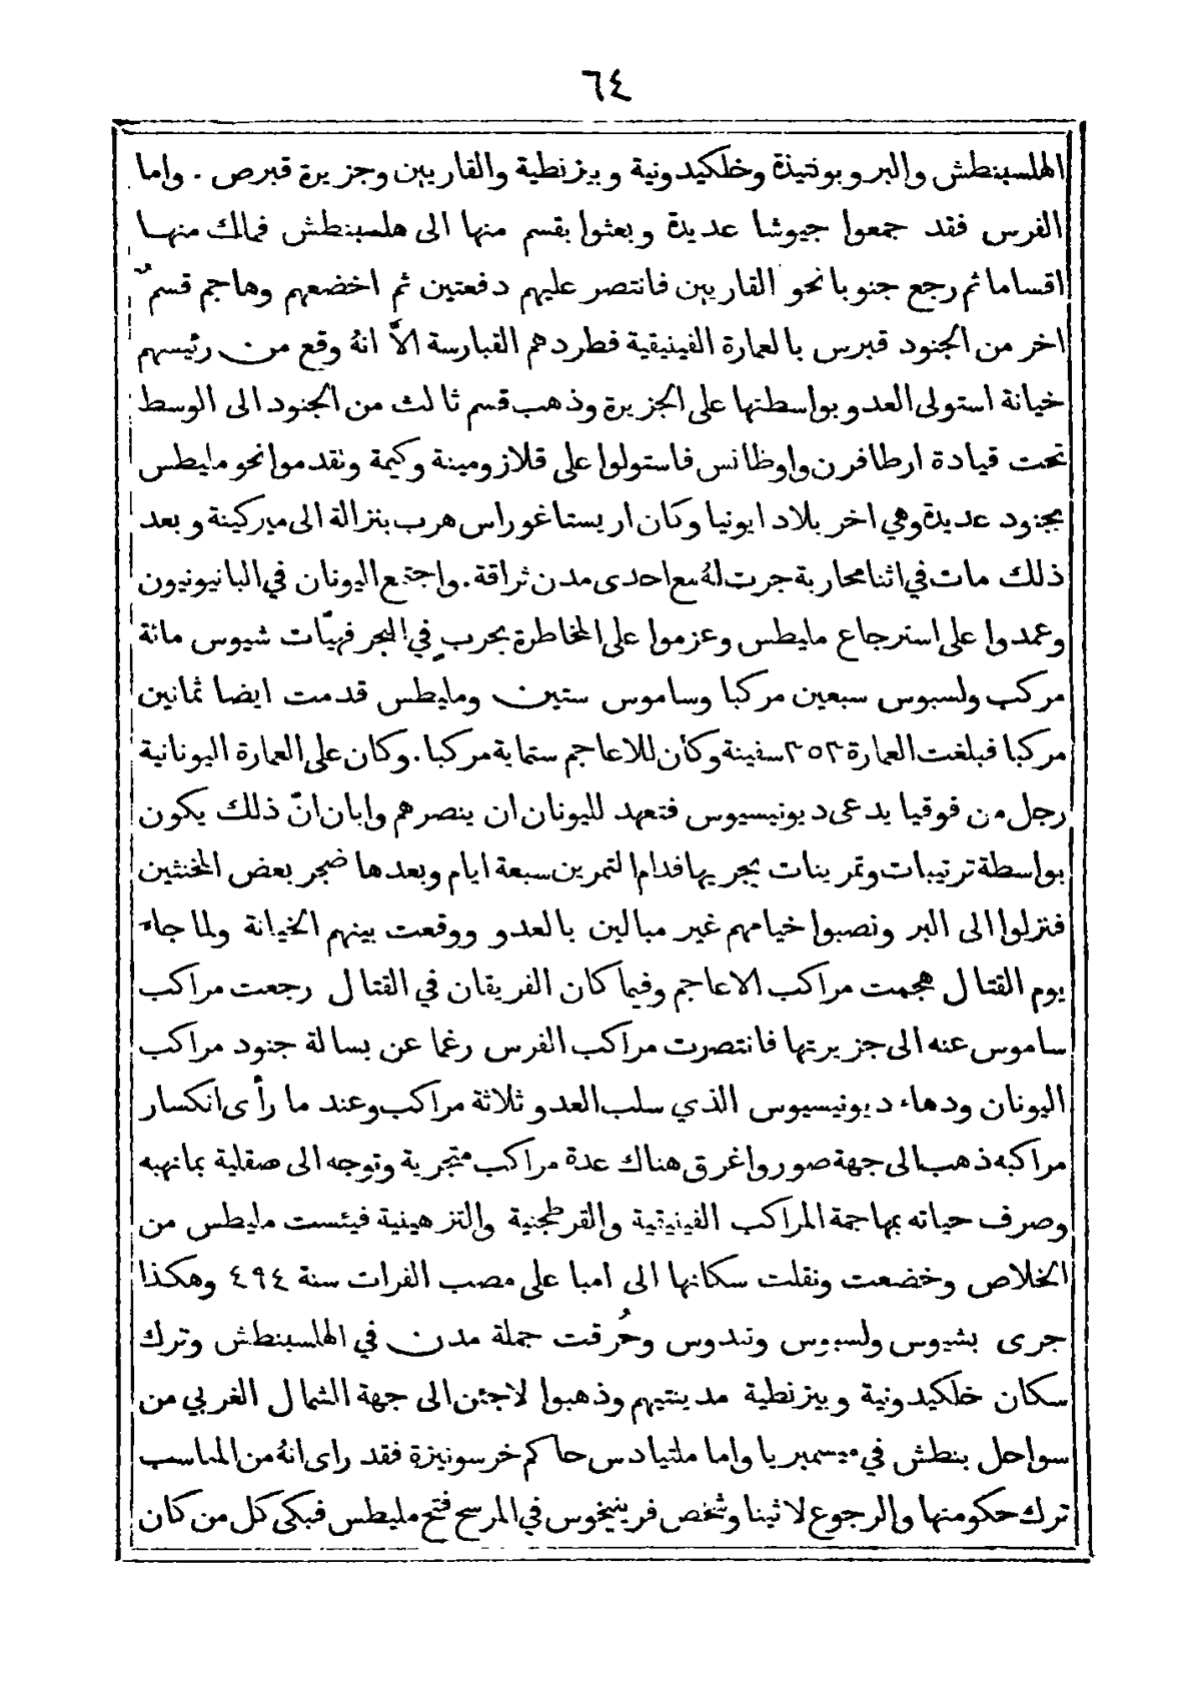 ٦٤
الهلسبنطش والبروبونتيذة وخلكيدونية وبيزنطية والقاريين وجزيرة قبرص . واما
الفرس فقد جمعوا جيوشا عديدة وبعثوا بقسم منها الى هلسبنطش فمالك منها
اقساما ثم رجع جنوبا نحو القاريين فانتصر عليهم دفعتين ثم اخضعهم وهاجم قسمٌ
اخر من الجنود قبرس بالعمارة الفينيقية فطردهم القبارسة الاَّ انهُ وقع من رئيسهم
خيانة استولى العدو بواسطتها على الجزيرة وذهب قسم ثالث من الجنود الى الوسط
تحت قيادة ارطافرن واوظانس فاستولوا على قلازومينة وكيمة ونقدموا نحو مليطس
بجنود عديدة وهي اخر بلاد ايونيا وكان اريستاغوراس هرب بنزالة الى ميركينة وبعد
ذلك مات في اثنا محاربة جرت لهُ مع احدى مدن ثراقة. واجتمع اليونان في البانيونيون
وعمدوا على استرجاع مليطس وعزموا على المخاطرة بحربٍ في البحر فهيَّات شيوس مائة
مركب ولسبوس سبعين مركبا وساموس ستين ومليطس قدمت ايضا ثمانين
مركبا فبلغت العمارة ٣٥٣ سفينة وكان للاعاجم ستماية مركبا. وكان على العمارة اليونانية
رجل من فوقيا يدعى ديونيسيوس فتعهد لليونان ان ينصرهم وابان انّ ذلك يكون
بواسطة ترتيبات وتمرينات يجريها فدام التمرين سبعة ايام وبعدها ضجر بعض المخنثين
فنزلوا الى البر ونصبوا خيامهم غير مبالين بالعدو ووقعت بينهم الخيانة ولما جاء
يوم القتال هجمت مراكب الاعاجم وفيما كان الفريقان في القتال رجعت مراكب
ساموس عنه الى جزيرتها فانتصرت مراكب الفرس رغما عن بسالة جنود مراكب
اليونان ودهاء ديونيسيوس الذي سلب العدو ثلاثة مراكب وعند ما رأى انكسار
مراكبه ذهب الى جهة صور واغرق هناك عدة مراكب متجرية وتوجه الى صقلية بما نهبه
وصرف حياته بمهاجمة المراكب الفينيقية والقرطجنية والتزهينية فيئست مليطس من
الخلاص وخضعت ونقلت سكانها الى امبا على مصب الفرات سنة ٤٩٤ وهكذا
جرى بشيوس ولسبوس وتندوس وحُرقت جملة مدن في الهلسبنطش وترك
سكان خلكيدونية وبيزنطية مدينتيهم وذهبوا لاجئن الى جهة الشمال الغربي من
سواحل بنطش في ميسمبريا واما ملتيادس حاكم خرسونيزة فقد راى انهُ من المناسب
ترك حكومتها والرجوع لاثينا وشخص فرينيخوس في المرسح فتح مليطس فبكى كل من كان